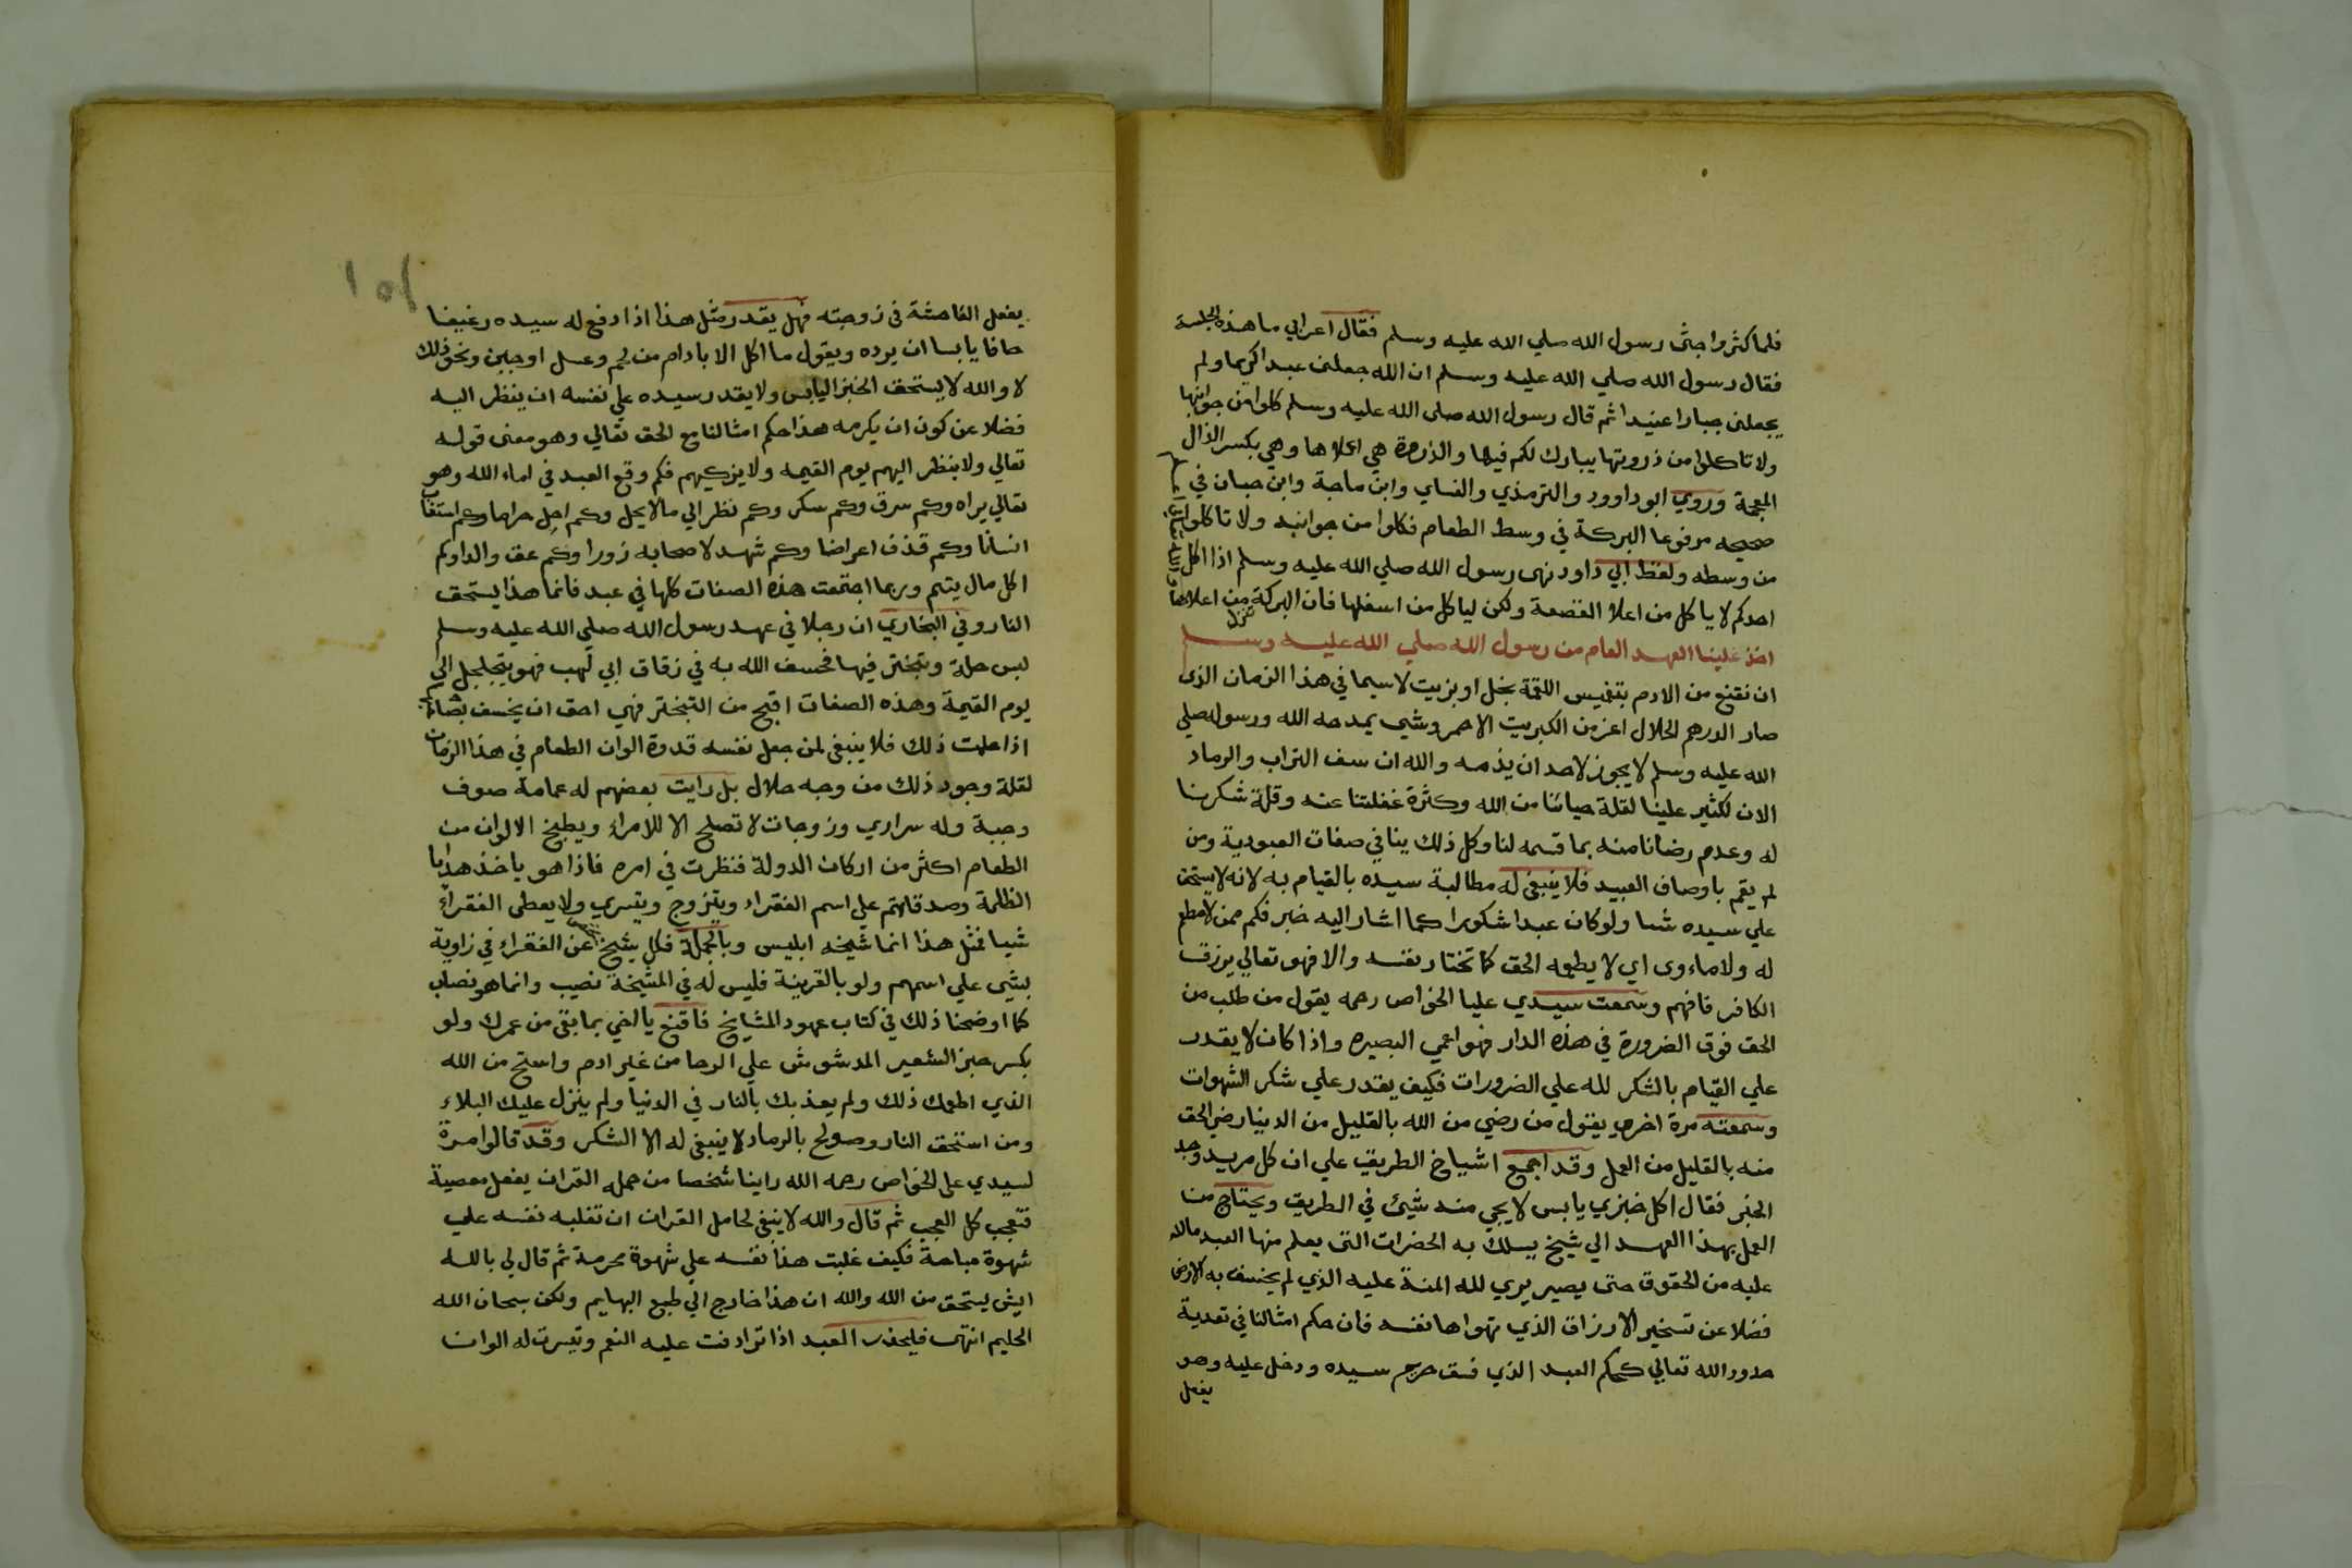 فلما كثروا جثى رسول الله صلي الله عليه وسلم فقال اعرابي ما هذه الجلسة
فقال رسول الله صلي الله عليه وسلم ان الله جعلنى عبدا كريما ولم
يجعلنى جبارا عنيدا ثم قال رسول الله صلى الله عليه وسلم كلوا من جوانبها
ولا تاكلوا من ذروتها يبارك لكم فيها والذروة هي اعلاها وهي بكسر الذال
المعجمة وروي ابو داوود والترمذي والنساي وابن ماجة وابن حبان في
صحيحه مرفوعا البركة في وسط الطعام فكلوا من جوانبه ولا تاكلوا
من وسطه ولفظ ابي داود نهى رسول الله صلي الله عليه وسلم اذا اكل
احدكم لا ياكل من اعلا القصعة ولكن لياكل من اسفلها فان البركة تنزل من اعلاها
والله تعالى اعلم
اخذ علينا العهد العام من رسول الله صلي الله عليه وسلم
ان نقنع من الادم بتغميس اللقمة بخل او بزيت لا سيما في هذا الزمان الذى
صار الدرهم الحلال اعز من الكبريت الاحمر وشي يمدحه الله ورسوله صلي
الله عليه وسلم لا يجوز لاحد ان يذمه والله ان سف التراب والرماد
الان لكثير علينا لقلة حيائنا من الله وكثرة غفلتنا عنه وقلة شكرنا
له وعدم رضانا منه بما قسمه لنا وكل ذلك ينافي صفات العبودية ومن
لم يقم باوصاف العبيد فلا ينبغى له مطالبة سيده بالقيام به لانه لا يستحق
علي سيده شيا ولو كان عبدا شكورا كما اشار اليه خبر فكم ممن لا مطعم
له ولا ماوى اي لا يطعمه الحق كما تختار نفسه والا فهو تعالي يرزق
الكافر فافهم وسمعت سيدي عليا الخواص رحمه يقول من طلب من
الحق فوق الضرورة في هذه الدار فهو اعمي البصيره واذا كان لا يقدر
علي القيام بالشكر لله علي الضرورات فكيف يقدر علي شكر الشهوات
وسمعته مرة اخري يقول من رضي من الله بالقليل من الدنيا رضي الحق
منه بالقليل من العمل وقد اجمع اشياخ الطريق علي ان كل مريد وجد
الخبز فقال اكل خبزي يابس لا يجي منه شيئ في الطريق ويحتاج من
العمل بهذا العهد الي شيخ يسلك به الحضرات التى يعلم منها العبد ما لله
عليه من الحقوق حتى يصير يري لله المنة عليه الذي لم يخسف به الارض
فضلا عن تسخير الارزاق الذي تهواها نفسه فان حكم امثالنا في تعدية
حدود الله تعالي كحكم العبد الذي فسق حرم سيده ودخل عليه وهو
يفعل
١٥١
يفعل الفاحشة فى زوجته فهل يقدر مثل هذا اذا دفع له سيده رغيفا
حافا يابسا ان يرده ويقول ما اكل الا بادام من لحم وعسل او جبن ونحو ذلك
لا والله لا يستحق الخبز اليابس ولا يقدر سيده علي نفسه ان ينظر اليه
فضلا عن كون ان يكرمه هذا حكم امثالنا مع الحق تعالي وهو معنى قوله
تعالي ولا ينظر اليهم يوم القيمه ولا يزكيهم فكم وقع العبد في اماء الله وهو
تعالي يراه وكم سرق وكم سكر وكم نظر الي ما لا يحل وكم اكل حراما وكم استغاب
انسانا وكم قذف اعراضا وكم شهد لاصحابه زورا وكم عق والدا وكم
اكل مال يتيم وربما اجتمعت هذه الصفات كلها في عبد فانما هذا يستحق
النار وفي البخاري ان رجلا في عهد رسول الله صلي الله عليه وسلم
لبس حلة وتبختر فيها فخسف الله به في زقاق ابي لهب فهو يتجلجل الي
يوم القيمة وهذه الصفات اقبح من التبختر فهي احق ان يخسف بصاحبها
اذا علمت ذلك فلا ينبغى لمن جعل نفسه قدوة الوان الطعام في هذا الزمان
لقلة وجود ذلك من وجه حلال بل رايت بعضهم له عمامة صوف
وجبة وله سراري وزوجات لا تصلح الا للامراء ويطبخ الالوان من
الطعام اكثر من اركان الدولة فنظرت في امره فاذا هو ياخذ هدايا
الظلمة وصدقاتهم علي اسم الفقراء ويتزوج ويتسري ولا يعطى الفقراء
شيا فمثل هذا انما شيخه ابليس وبالجملة فكل شيخ تميز عن الفقراء في زاوية
بشي علي اسمهم ولو بالقرينة فليس له في المشيخة نصيب وانما هو نصاب
كما اوضحنا ذلك في كتاب عهود المشايخ فاقنع يا اخي بما بقى من عمرك ولو
بكسر خبز الشعير المدشوش علي الرحا من غير ادم واستح من الله
الذي اطعمك ذلك ولم يعذبك بالنار في الدنيا ولم ينزل عليك البلاء
ومن استحق النار وصولح بالرماد لا ينبغى له الا الشكر وقد قالوا مرة
لسيدي على الخواص رحمه الله راينا شخصا من حملة القران يفعل معصية
فتعجب كل العجب ثم قال والله لا ينبغى لحامل القران ان تغلبه نفسه علي
شهوة مباحة فكيف غلبت هذا نفسه علي شهوة محرمة ثم قال لي بالله
ايش يستحق من الله والله ان هذا خارج الي طبع البهايم ولكن سبحان الله
الحليم انتهى فليحذر العبد اذا ترادفت عليه النعم وتيسرت له الوان